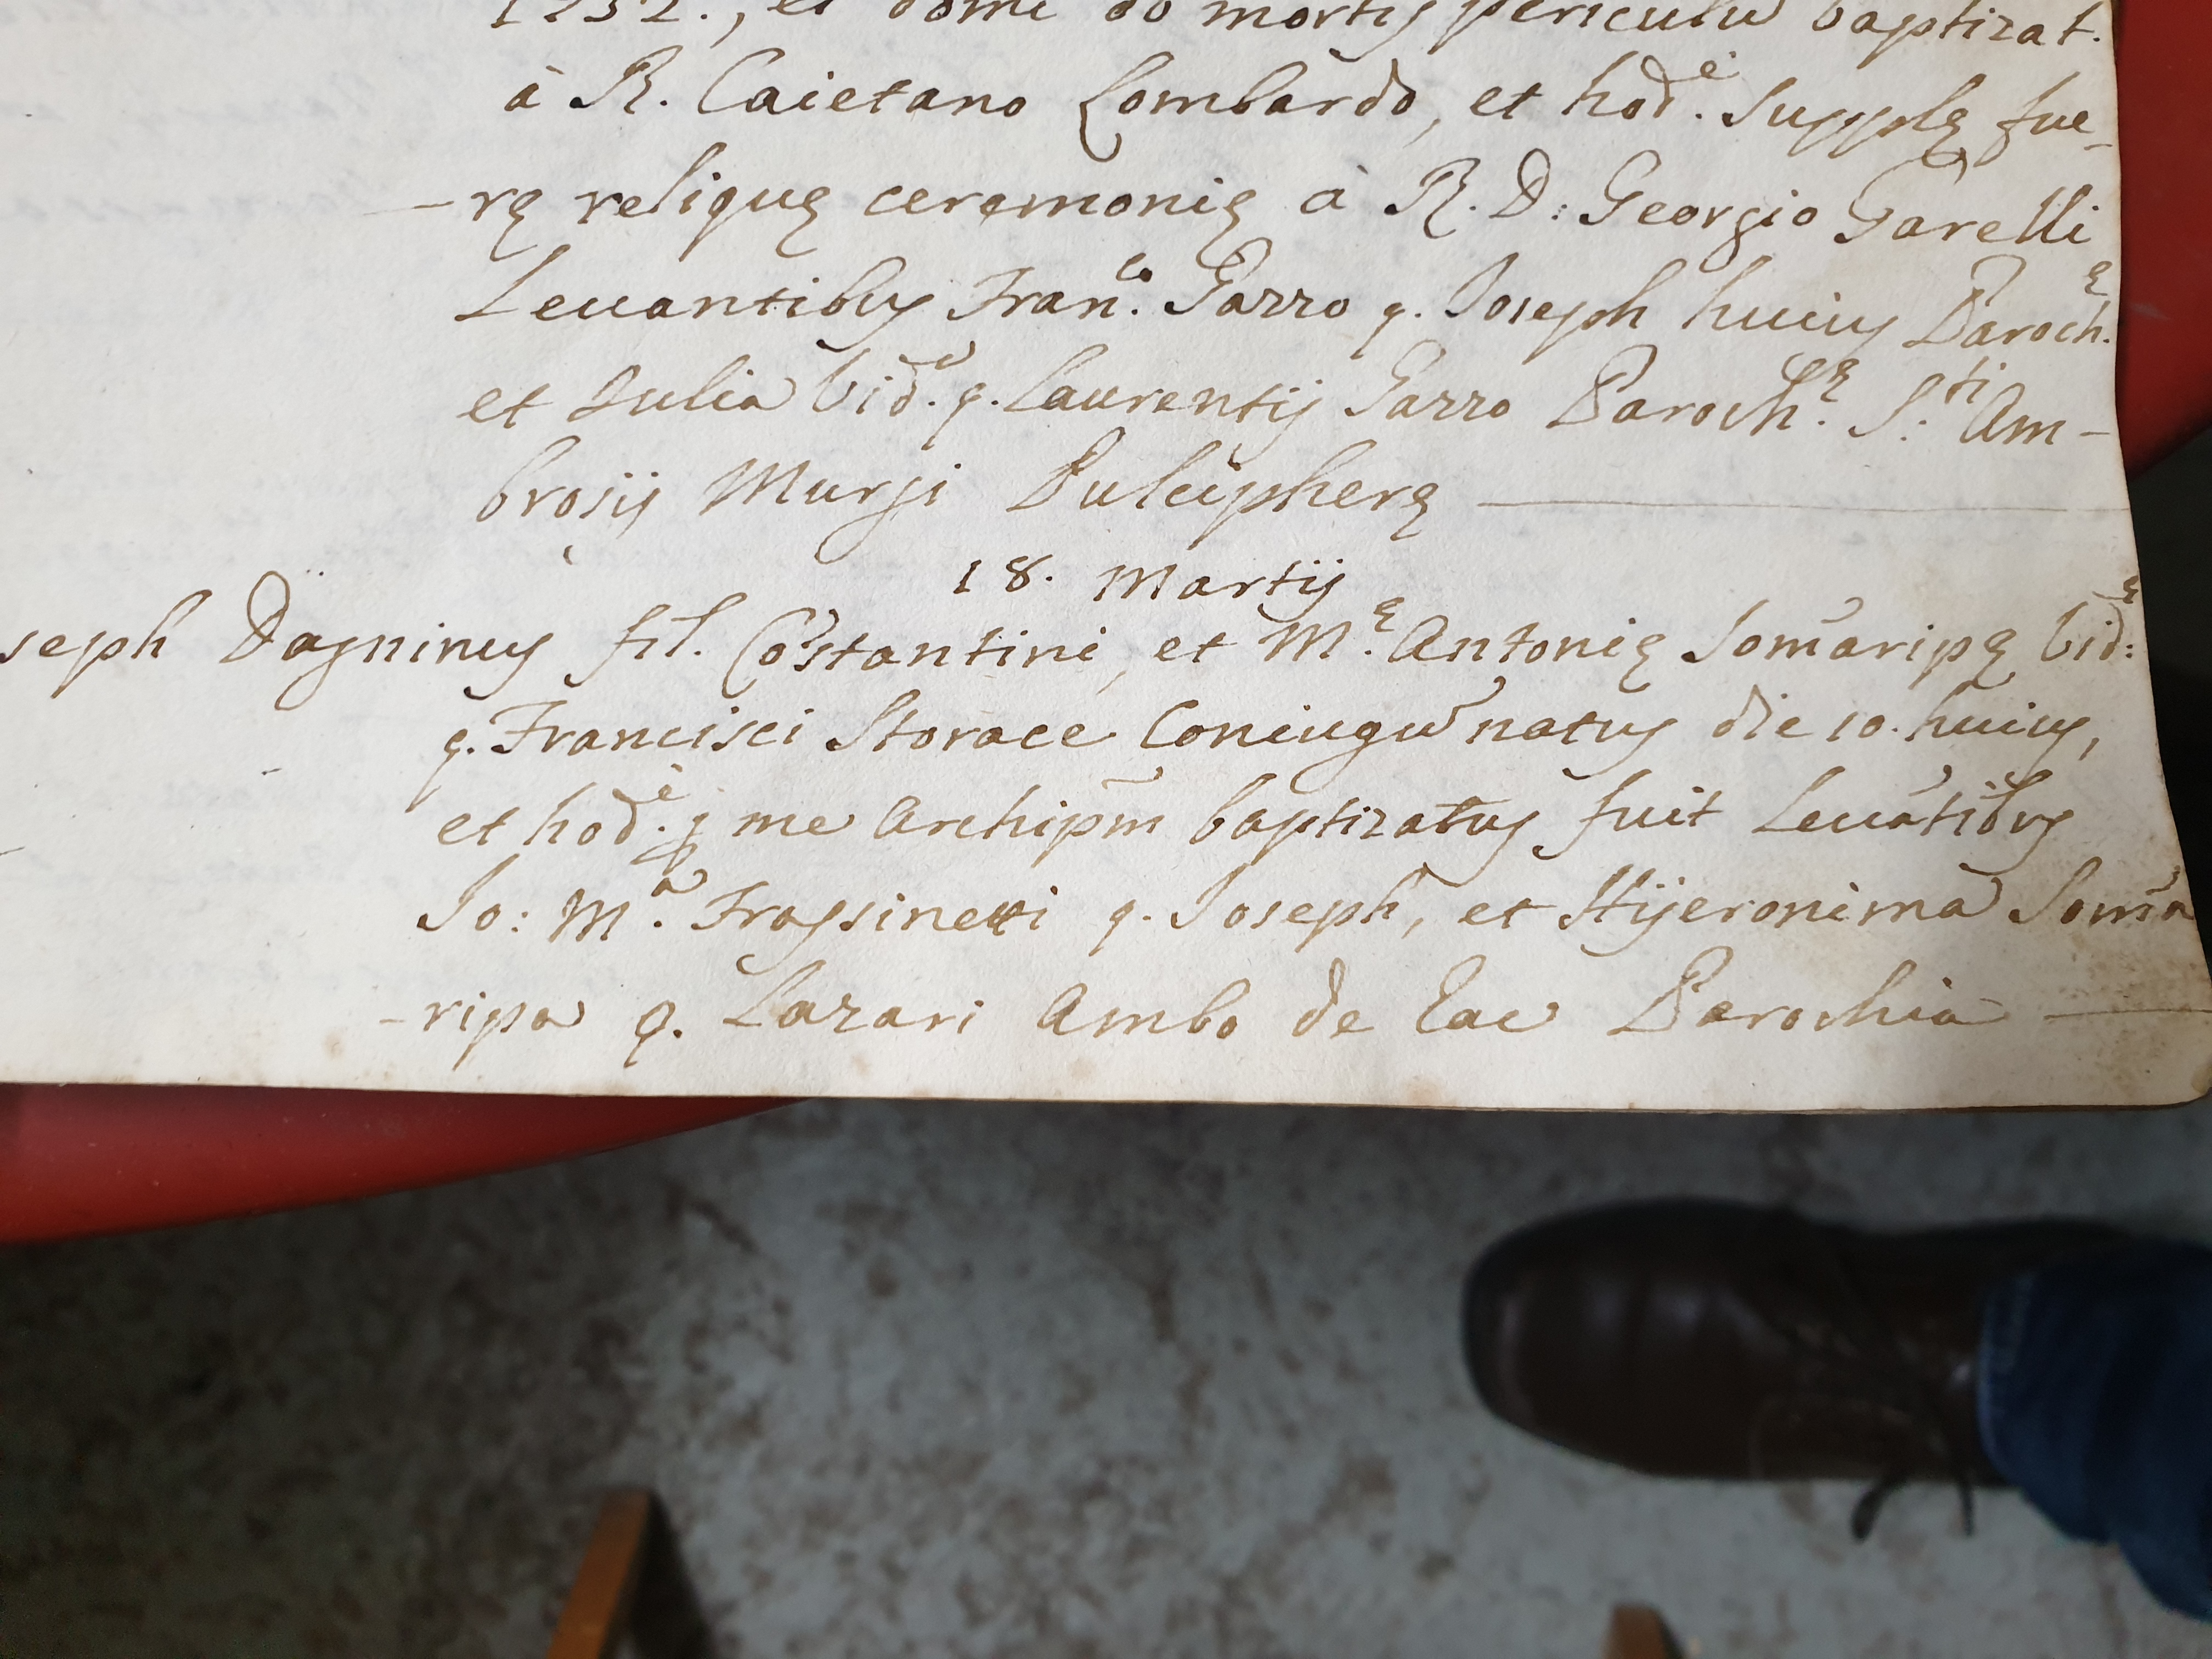 1732., et domi ob mortis periculū baptizat.
à R. Caietano Lombardo, et hod.e Supplę fue-
-rę reliquę ceręmonię à R. D: Georgio Garelli
Leuantibus Fran.co Gazzo q. Joseph huius Paroch.ę
et Julia Vid.ū q. Laurentij Gazzo Paroch.ę S:ti Am-
brosij Murji Pulcipherę
18. Martij
seph Dagninus fil. Cōstantini, et M.ę Antonię Som̄aripę Vid:ę
q. Francisci Storace Coniugū natus die 10. huius,
et hod.e ꝑ me Archipm̄ baptizatus fuit Leuātibus
Jo: M.a Frassinetti q. Joseph, et Hijeronima Som̄a
-ripa q. Lazari Ambo de Eac Parochia